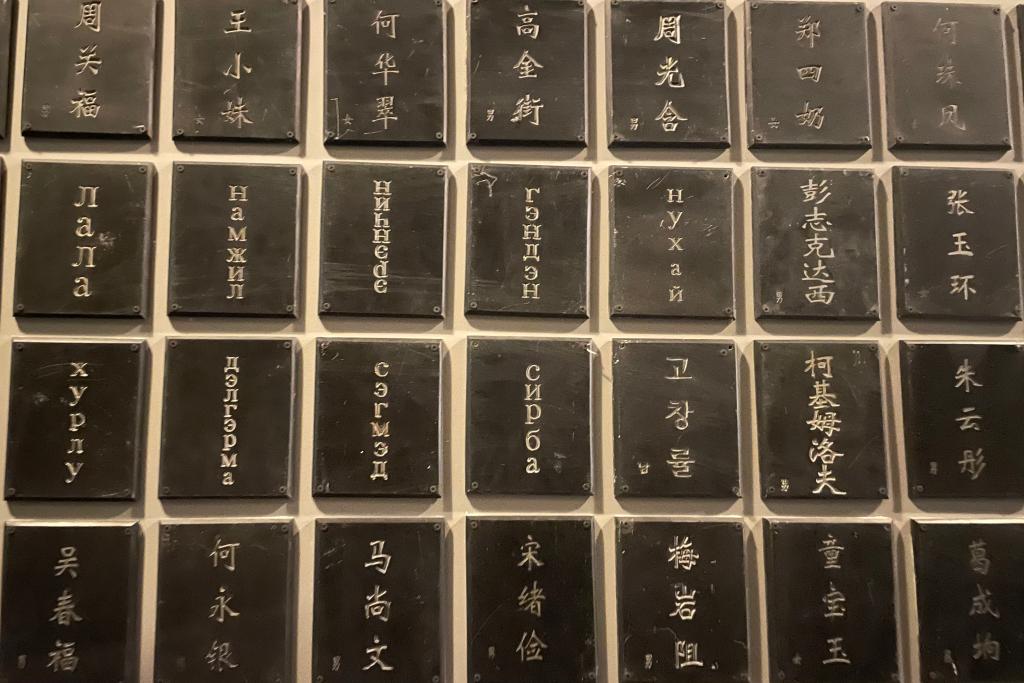 周关福
王小妹
何华翠
高金街
周光含
郑四奶
лала
намжил
гэндэн
нухай
彭志克达西
张玉环
хурлу
дэлгэрма
сэгмэд
сирба
고창률
남
柯基姆洛夫
朱云彤
吴春福
何永银
马尚文
宋绪俭
梅岩阻
童宝玉
葛成